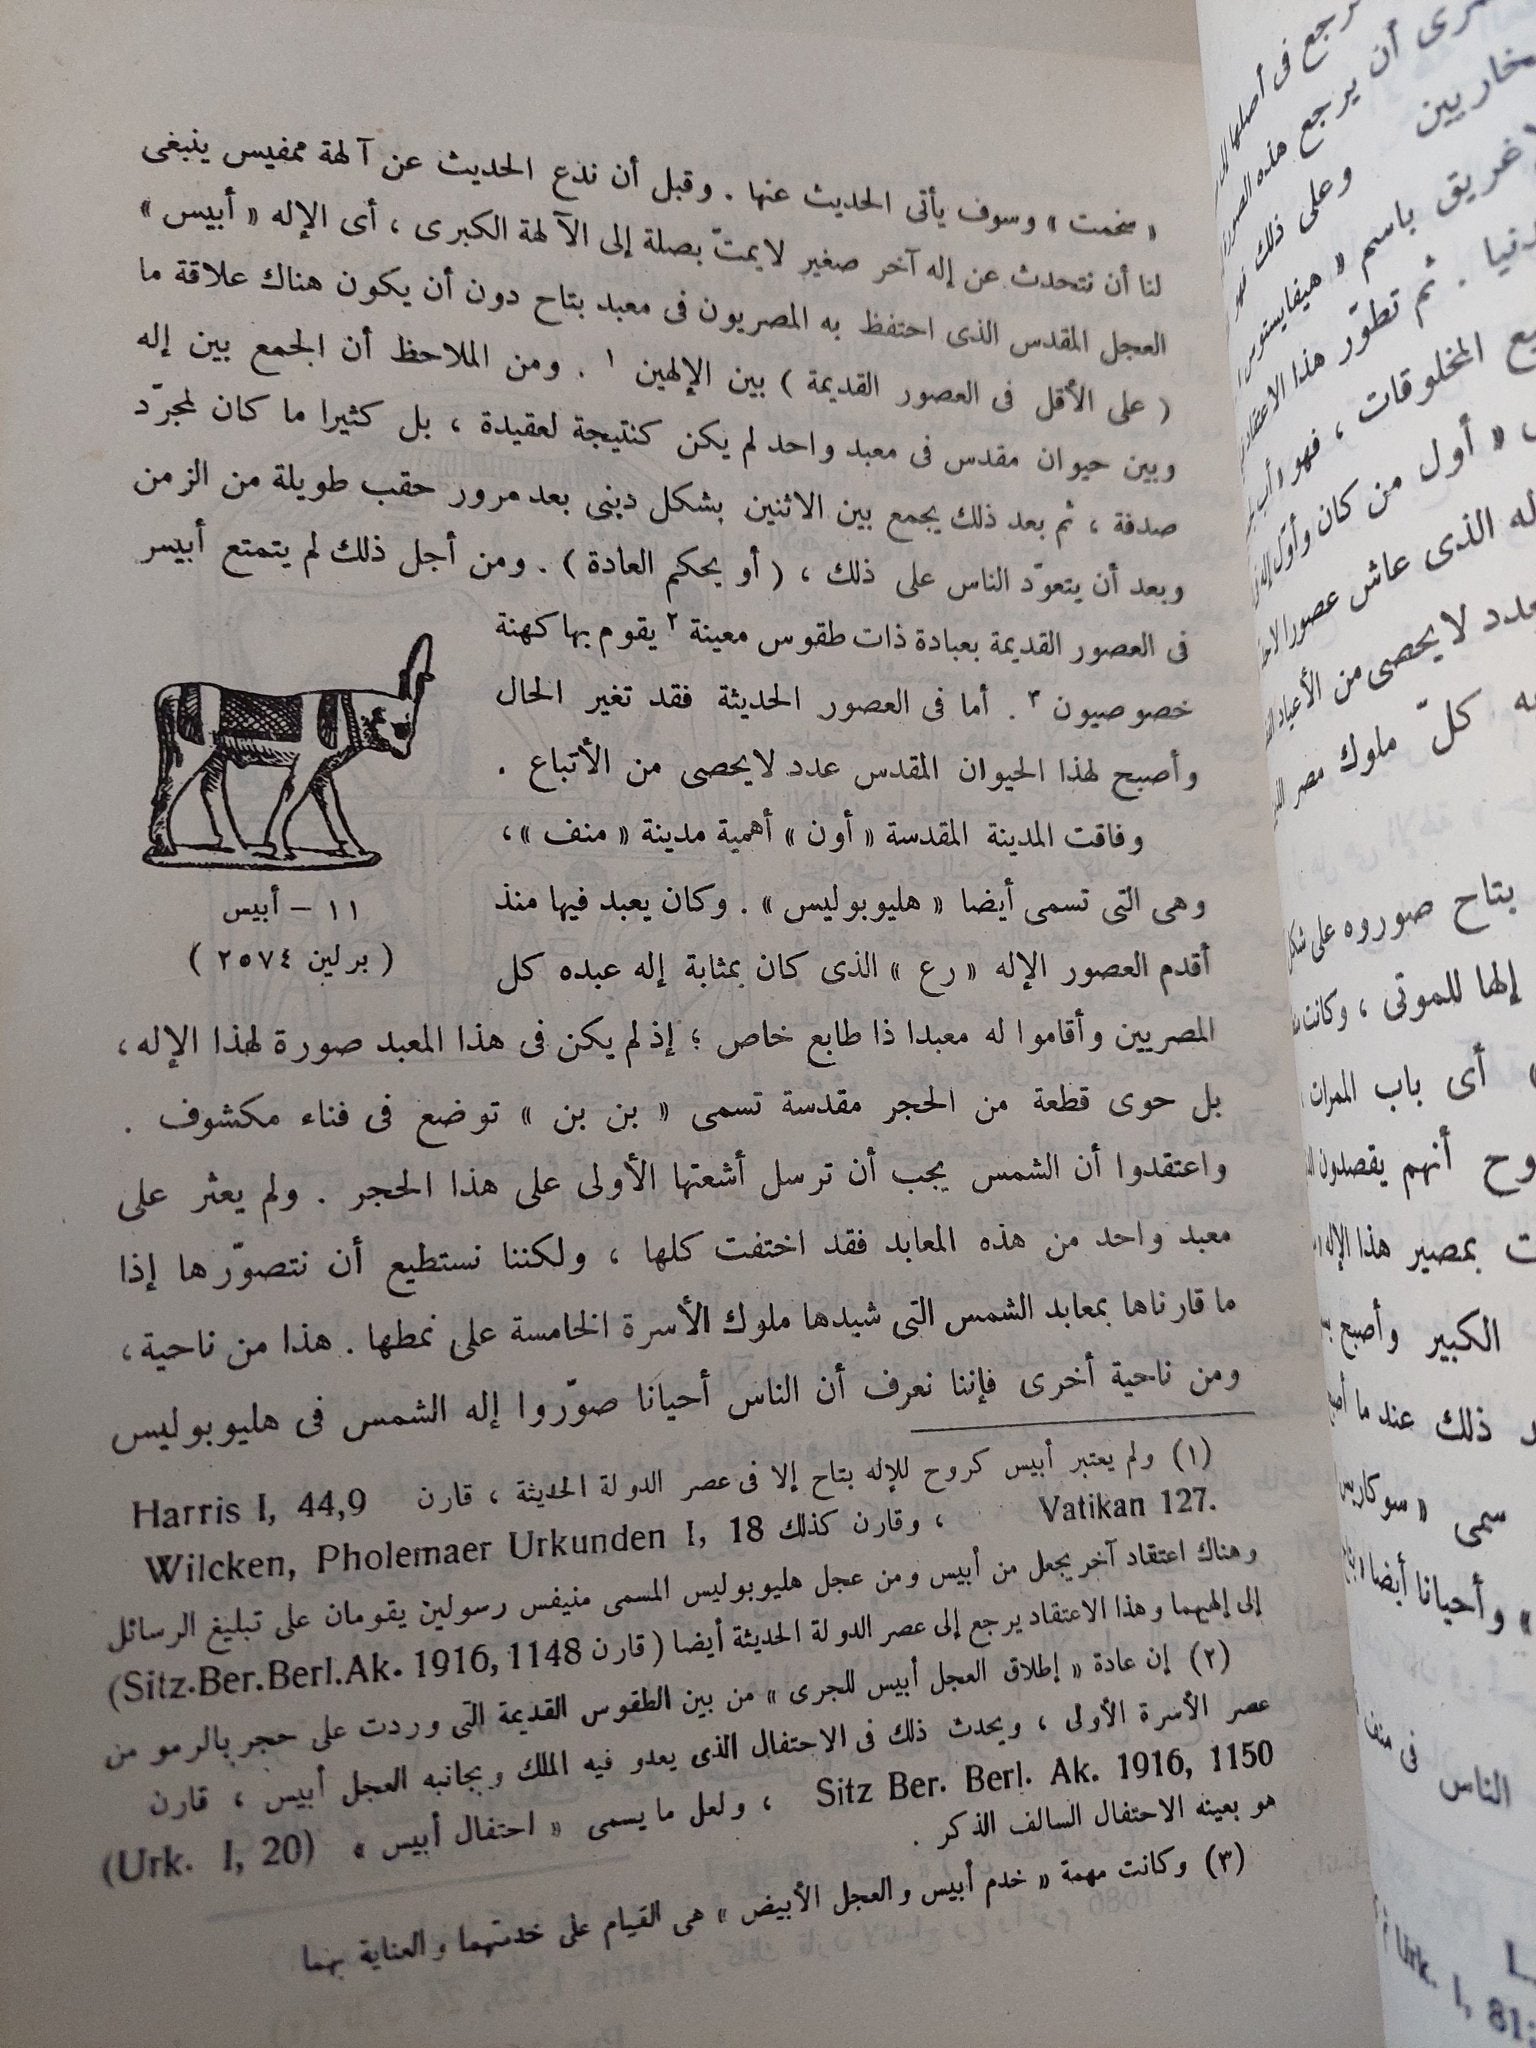 « سخمت » وسوف يأتى الحديث عنها . وقبل أن ندع الحديث عن آلهة ممفيس ينبغى
لنا أن نتحدث عن إله آخر صغير لايمتّ بصلة إلى الآلهة الكبرى ، أى الإله « أبيس »
العجل المقدس الذى احتفظ به المصريون فى معبد بتاح دون أن يكون هناك علاقة ما
( على الأقل فى العصور القديمة ) بين الإلهين ١ . ومن الملاحظ أن الجمع بين إله
وبين حيوان مقدس فى معبد واحد لم يكن كنتيجة لعقيدة ، بل كثيرا ما كان لمجرّد
صدفة ، ثم بعد ذلك يجمع بين الاثنين بشكل دينى بعد مرور حقب طويلة من الزمن
وبعد أن يتعوّد الناس على ذلك ، ( أو بحكم العادة ) . ومن أجل ذلك لم يتمتع أبيس
فى العصور القديمة بعبادة ذات طقوس معينة ٢ يقوم بها كهنة
خصوصيون ٣ . أما فى العصور الحديثة فقد تغير الحال
وأصبح لهذا الحيوان المقدس عدد لايحصى من الأتباع .
وفاقت المدينة المقدسة « أون » أهمية مدينة « منف » ،
وهى التى تسمى أيضا « هليوبوليس » . وكان يعبد فيها منذ
أقدم العصور الإله « رع » الذى كان بمثابة إله عبده كل
١١ – أبيس
( برلين ٢٥٧٤ )
المصريين وأقاموا له معبدا ذا طابع خاص ؛ إذ لم يكن فى هذا المعبد صورة لهذا الإله ،
بل حوى قطعة من الحجر مقدسة تسمى « بن بن » توضع فى فناء مكشوف .
واعتقدوا أن الشمس يجب أن ترسل أشعتها الأولى على هذا الحجر . ولم يعثر على
معبد واحد من هذه المعابد فقد اختفت كلها ، ولكننا نستطيع أن نتصوّرها إذا
ما قارناها بمعابد الشمس التى شيدها ملوك الأسرة الخامسة على نمطها . هذا من ناحية ،
ومن ناحية أخرى فإننا نعرف أن الناس أحيانا صوّروا إله الشمس فى هليوبوليس
(١) ولم يعتبر أبيس كروح للإله بتاح إلا فى عصر الدولة الحديثة ، قارن Harris I, 44,9
Vatikan 127. ، وقارن كذلك Wilcken, Pholemaer Urkunden I, 18
وهناك اعتقاد آخر يجعل من أبيس ومن عجل هليوبوليس المسمى منيفس رسولين يقومان على تبليغ الرسائل
إلى إلهيهما وهذا الاعتقاد يرجع إلى عصر الدولة الحديثة أيضا ( قارن Sitz.Ber.Berl.Ak. 1916, 1148)
(٢) إن عادة « إطلاق العجل أبيس للجرى » من بين الطقوس القديمة التى وردت على حجر بالرمو من
عصر الأسرة الأولى ، ويحدث ذلك فى الاحتفال الذى يعدو فيه الملك وبجانبه العجل أبيس ، قارن
Sitz Ber. Berl. Ak. 1916, 1150 ، ولعل ما يسمى « احتفال أبيس » (Urk. I, 20)
هو بعينه الاحتفال السالف الذكر .
(٣) وكانت مهمة « خدم أبيس والعجل الأبيض » هى القيام على خدمتهما والعناية بهما
يرجع فى أصلها
أن يرجع هذه
وعلى ذلك فهو
باسم « هيفايستوس
. ثم تطوّر هذا
المخلوقات ، فهو
« أول من كان وأول إله
الذى عاش عصورا
لايحصى من الأعياد
كلّ ملوك مصر
بتاح صوروه على شكل
إلها للموتى ، وكانت
أى باب الممرات
أنهم يقصدون
بمصير هذا الإله
الكبير وأصبح
ذلك عندما
سمى « سوكاريس
» وأحيانا أيضا
الناس فى منف
Urk. I,